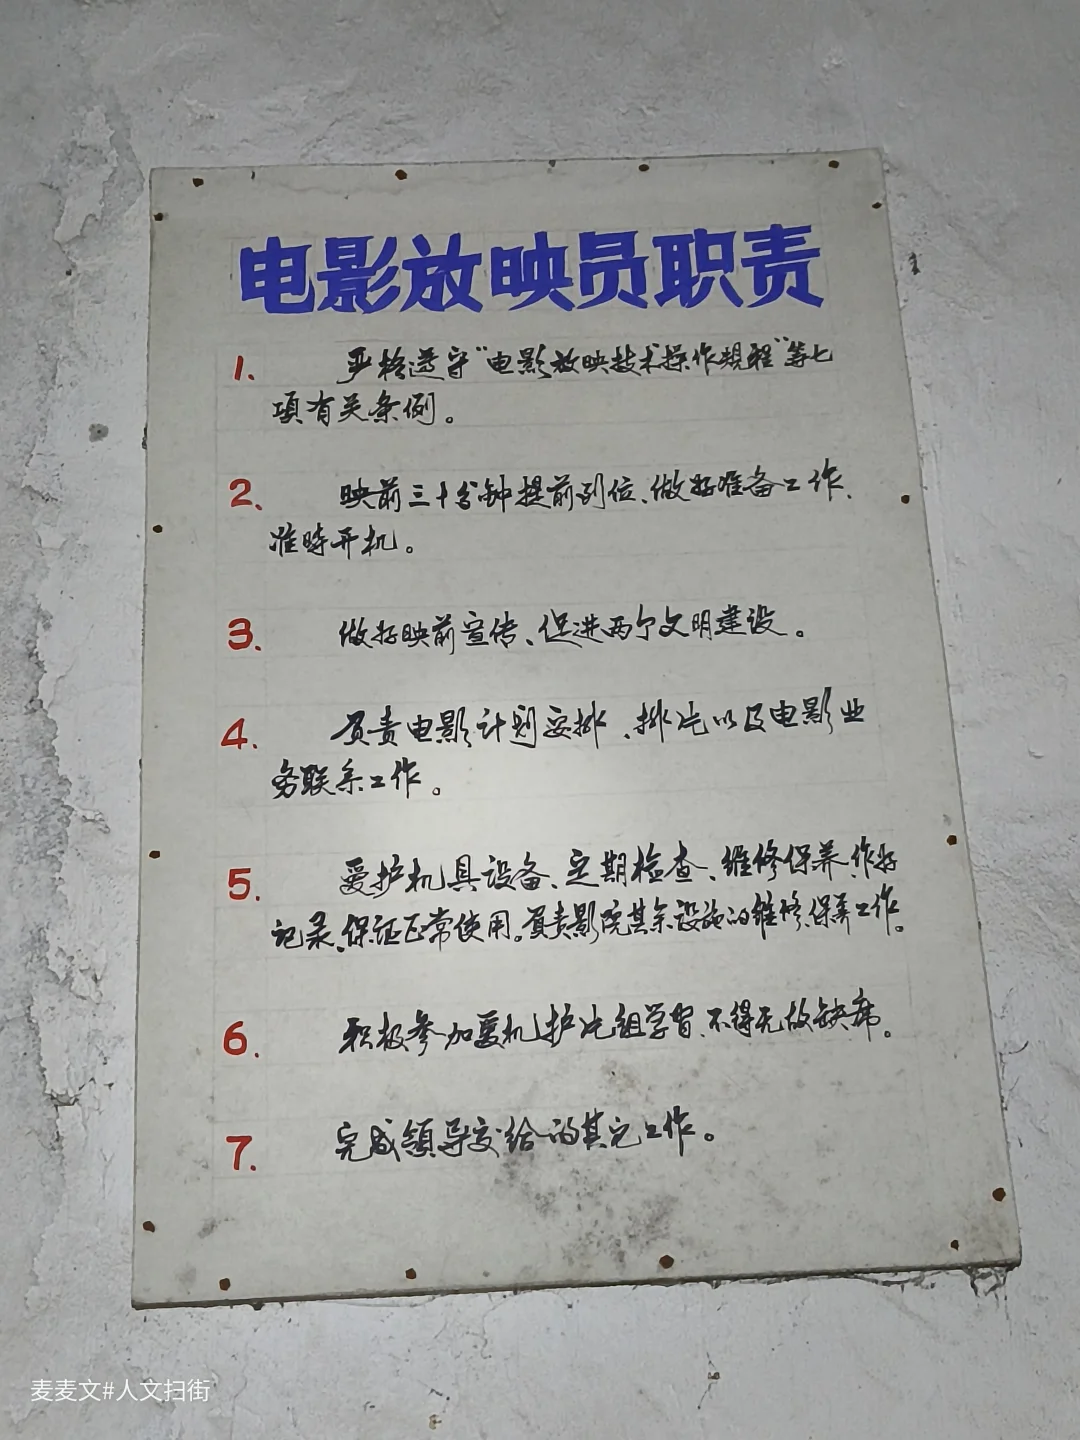 电影放映员职责
1. 严格遵守“电影放映技术操作规程”等七
项有关条例。
2. 映前三十分钟提前到位、做好准备工作、
准时开机。
3. 做好映前宣传、促进两个文明建设。
4. 负责电影计划安排、排片以及电影业
务联系工作。
5. 爱护机具设备、定期检查、维修保养、作好
记录、保证正常使用。负责影院其余设施的维修、保养工作。
6. 积极参加爱机护片组学习、不得无故缺席。
7. 完成领导交给的其它工作。
麦麦文#人文扫街